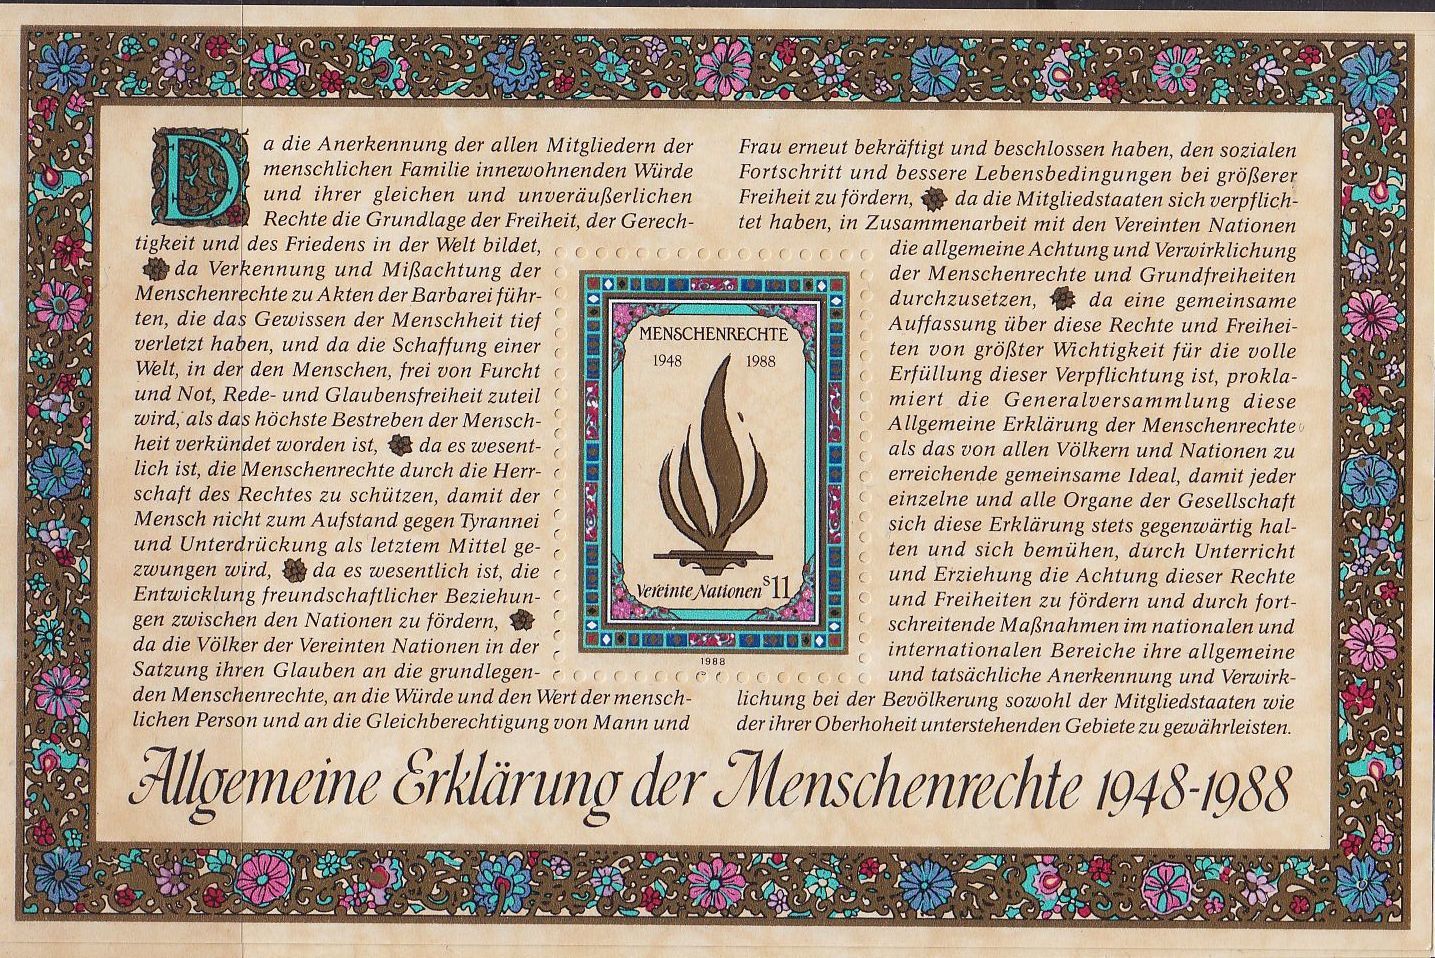 Da die Anerkennung der allen Mitgliedern der
menschlichen Familie innewohnenden Würde
und ihrer gleichen und unveräußerlichen
Rechte die Grundlage der Freiheit, der Gerech-
tigkeit und des Friedens in der Welt bildet,
da Verkennung und Mißachtung der
Menschenrechte zu Akten der Barbarei führ-
ten, die das Gewissen der Menschheit tief
verletzt haben, und da die Schaffung einer
Welt, in der den Menschen, frei von Furcht
und Not, Rede- und Glaubensfreiheit zuteil
wird, als das höchste Bestreben der Mensch-
heit verkündet worden ist, da es wesent-
lich ist, die Menschenrechte durch die Herr-
schaft des Rechtes zu schützen, damit der
Mensch nicht zum Aufstand gegen Tyrannei
und Unterdrückung als letztem Mittel ge-
zwungen wird, da es wesentlich ist, die
Entwicklung freundschaftlicher Beziehun-
gen zwischen den Nationen zu fördern,
da die Völker der Vereinten Nationen in der
Satzung ihren Glauben an die grundlegen-
den Menschenrechte, an die Würde und den Wert der mensch-
lichen Person und an die Gleichberechtigung von Mann und
Frau erneut bekräftigt und beschlossen haben, den sozialen
Fortschritt und bessere Lebensbedingungen bei größerer
Freiheit zu fördern, da die Mitgliedstaaten sich verpflich-
tet haben, in Zusammenarbeit mit den Vereinten Nationen
die allgemeine Achtung und Verwirklichung
der Menschenrechte und Grundfreiheiten
durchzusetzen, da eine gemeinsame
Auffassung über diese Rechte und Freihei-
ten von größter Wichtigkeit für die volle
Erfüllung dieser Verpflichtung ist, prokla-
miert die Generalversammlung diese
Allgemeine Erklärung der Menschenrechte
als das von allen Völkern und Nationen zu
erreichende gemeinsame Ideal, damit jeder
einzelne und alle Organe der Gesellschaft
sich diese Erklärung stets gegenwärtig hal-
ten und sich bemühen, durch Unterricht
und Erziehung die Achtung dieser Rechte
und Freiheiten zu fördern und durch fort-
schreitende Maßnahmen im nationalen und
internationalen Bereiche ihre allgemeine
und tatsächliche Anerkennung und Verwirk-
lichung bei der Bevölkerung sowohl der Mitgliedstaaten wie
der ihrer Oberhoheit unterstehenden Gebiete zu gewährleisten.
MENSCHENRECHTE
1948 1988
Vereinte Nationen S11
1988
Allgemeine Erklärung der Menschenrechte 1948-1988